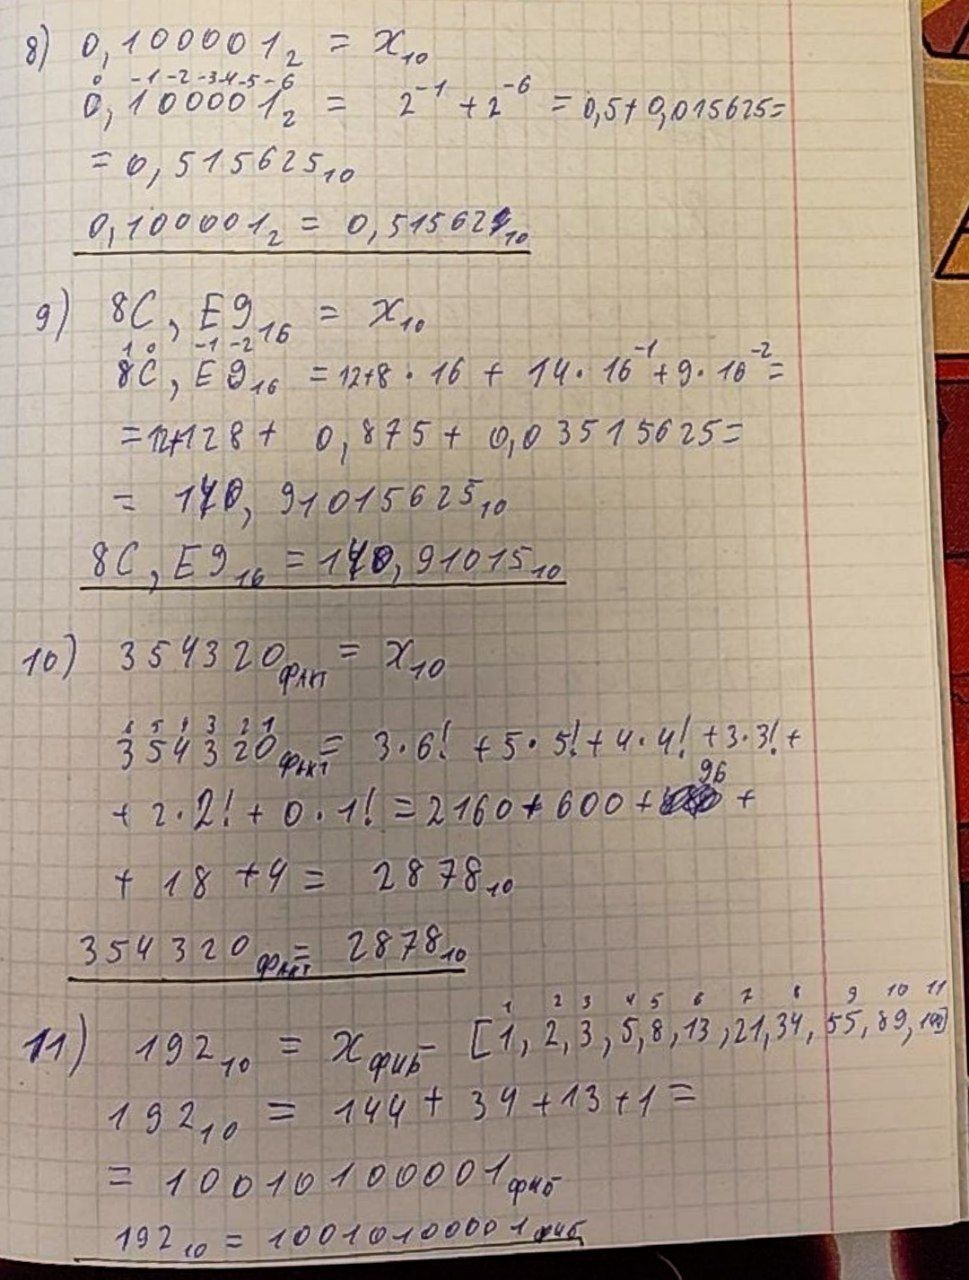 8) 0,100001₂ = x₁₀
0 -1 -2 -3 -4 -5 -6
0,100001₂ = 2⁻¹ + 2⁻⁶ = 0,5 + 0,015625 =
= 0,515625₁₀
0,100001₂ = 0,51562₁₀
9) 8C,E9₁₆ = x₁₀
1 0 -1 -2
8C,E9₁₆ = 12+8 · 16 + 14 · 16⁻¹ + 9 · 16⁻² =
= 12+128 + 0,875 + 0,03515625 =
= 140,91015625₁₀
8C,E9₁₆ = 140,91015₁₀
10) 354320факт = x₁₀
6 5 4 3 2 1
354320факт = 3·6! + 5·5! + 4·4! + 3·3! +
+ 2·2! + 0·1! = 2160 + 600 + 96 +
+ 18 + 4 = 2878₁₀
354320факт = 2878₁₀
1 2 3 4 5 6 7 8 9 10 11
11) 192₁₀ = xфиб - [1, 2, 3, 5, 8, 13, 21, 34, 55, 89, 144]
192₁₀ = 144 + 34 + 13 + 1 =
= 10010100001фиб
192₁₀ = 10010100001фиб